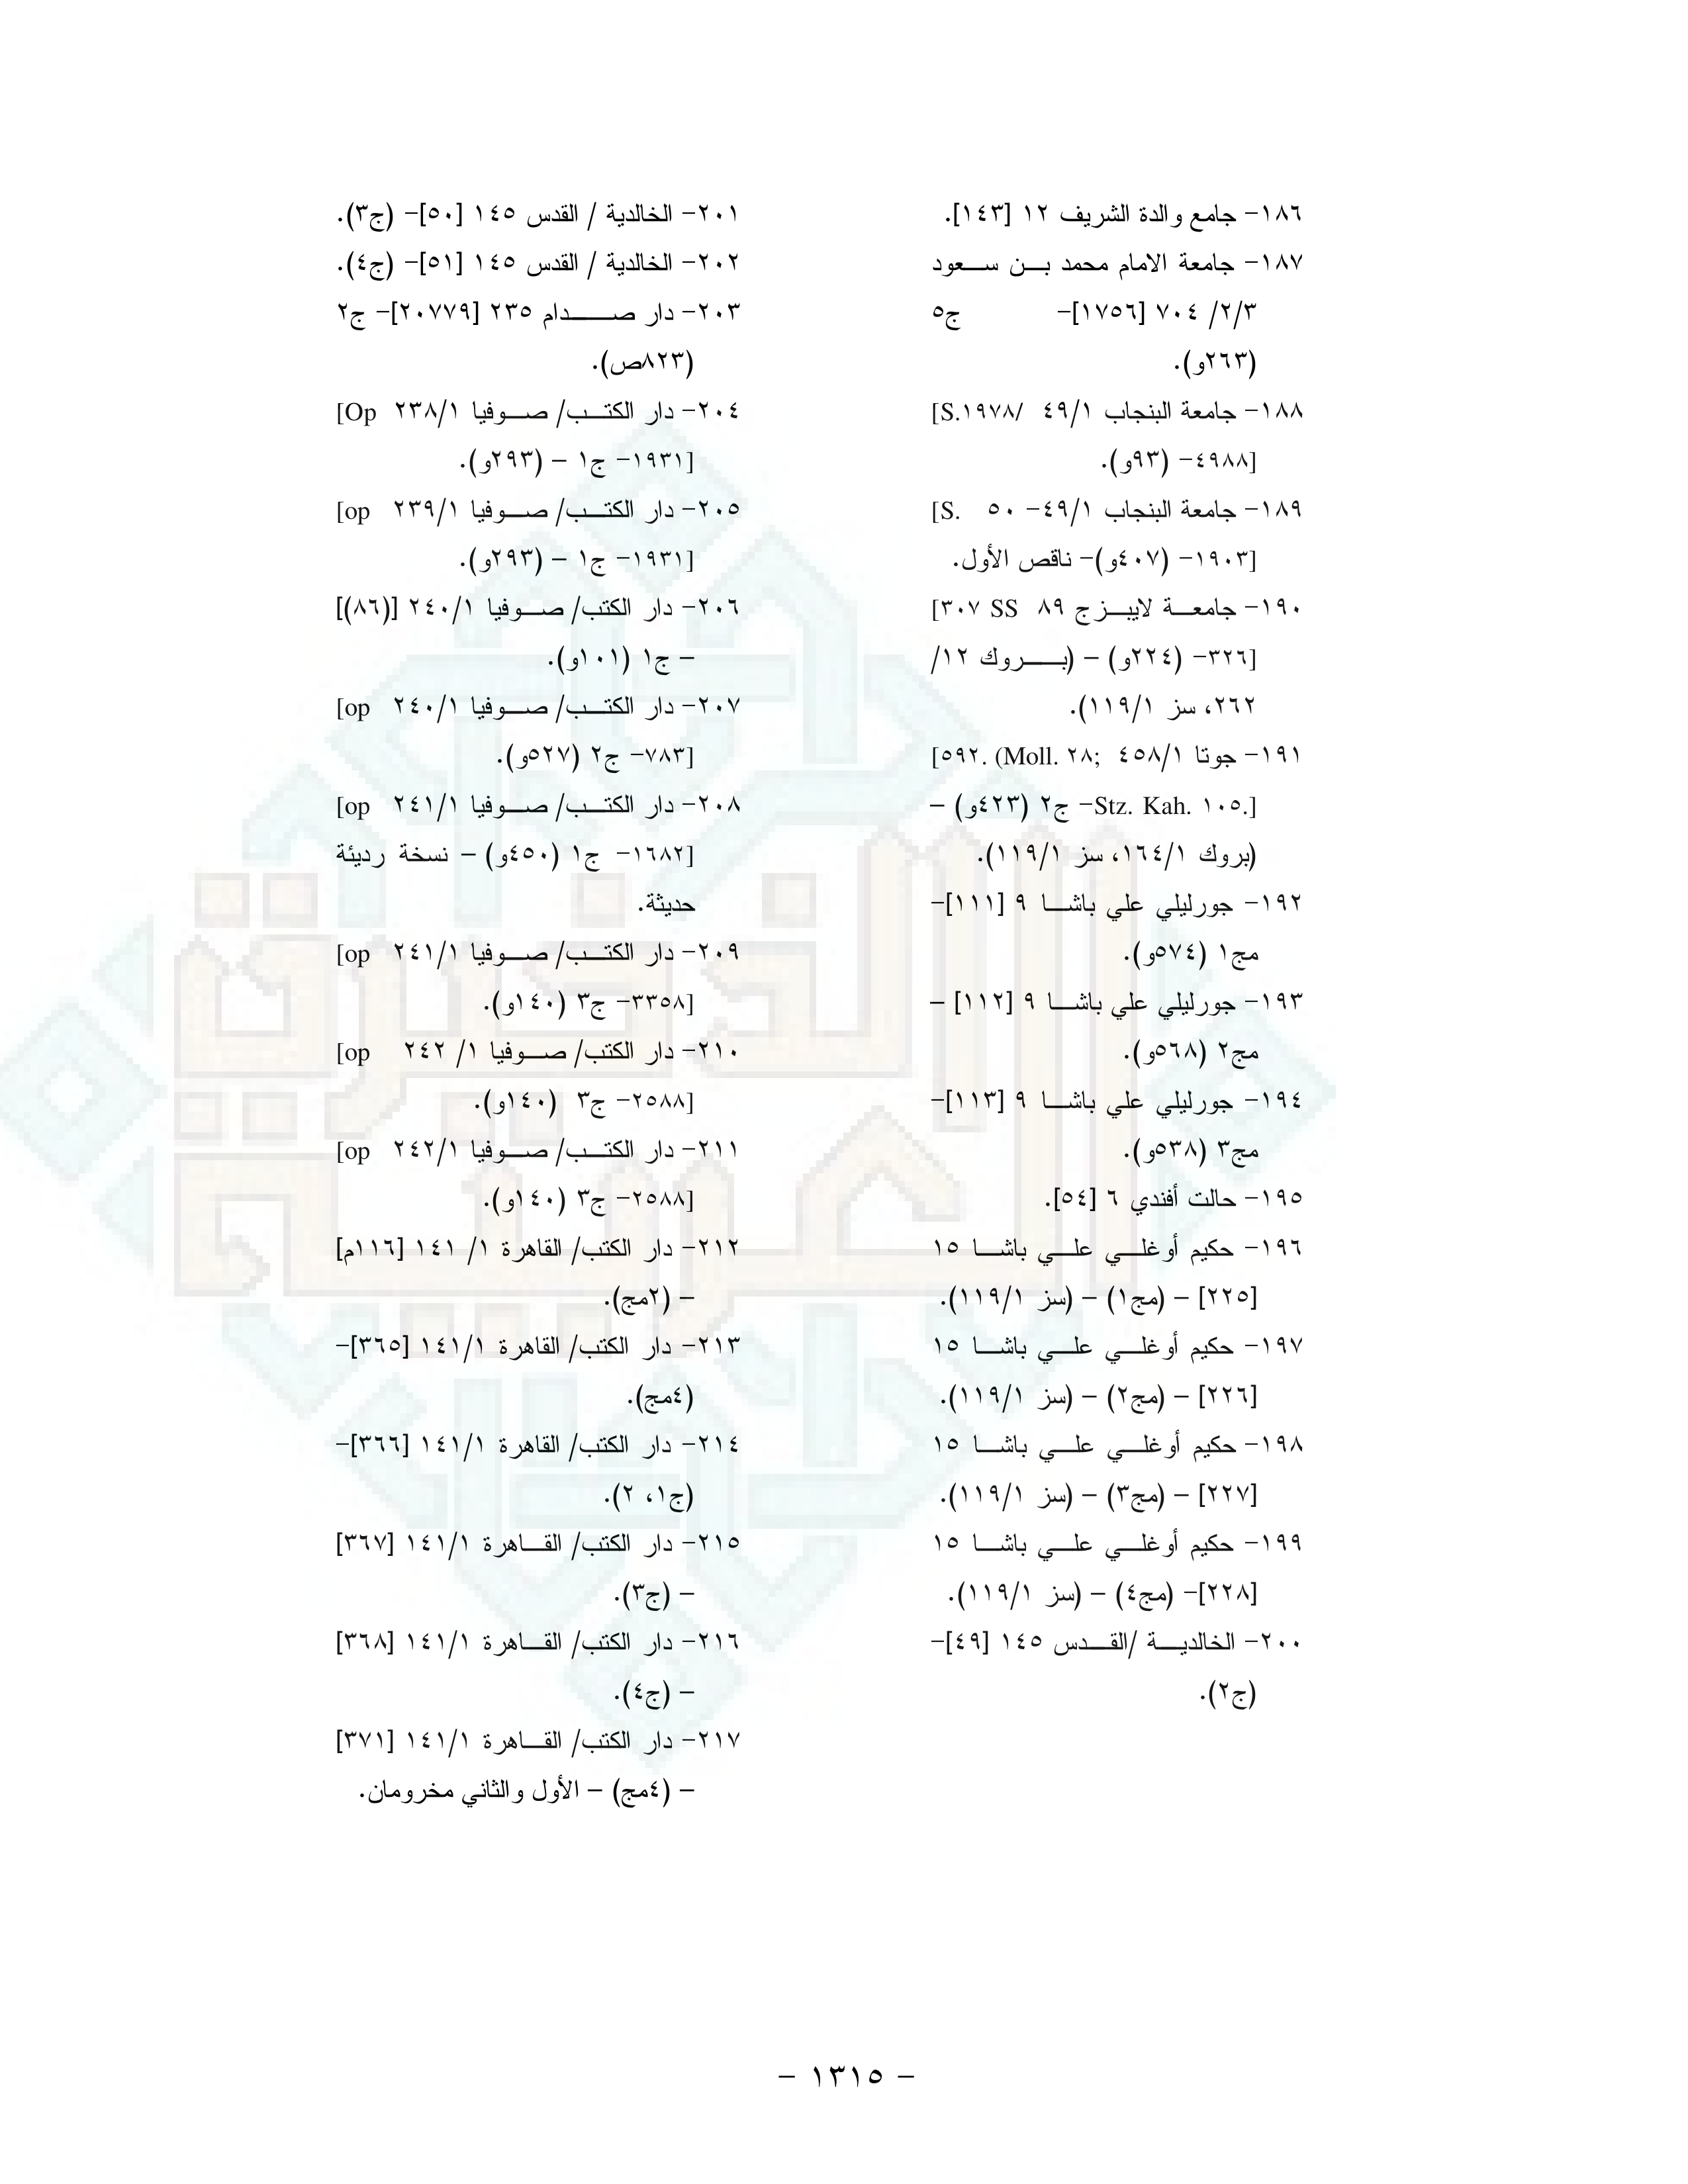 ١٨٦- جامع والدة الشريف ١٢ [١٤٣].
١٨٧- جامعة الامام محمد بن سعود
٢/٣/ ٧٠٤ [١٧٥٦]- ج٥
(٢٦٣و).
١٨٨- جامعة البنجاب ٤٩/١ [S.١٩٧٨/
٤٩٨٨]- (٩٣و).
١٨٩- جامعة البنجاب ٤٩/١- ٥٠ [S.
١٩٠٣]- (٤٠٧و)- ناقص الأول.
١٩٠- جامعة لايبزج ٨٩ [٣٠٧ SS
٣٢٦]- (٢٢٤و) – (بروك ١٢/
٢٦٢، سز ١١٩/١).
١٩١- جوتا ٤٥٨/١ [٥٩٢. (Moll. ٢٨;
Stz. Kah. ١٠٥.]- ج٢ (٤٢٣و) –
(بروك ١٦٤/١، سز ١١٩/١).
١٩٢- جورليلي علي باشا ٩ [١١١]-
مج١ (٥٧٤و).
١٩٣- جورليلي علي باشا ٩ [١١٢] –
مج٢ (٥٦٨و).
١٩٤- جورليلي علي باشا ٩ [١١٣]-
مج٣ (٥٣٨و).
١٩٥- حالت أفندي ٦ [٥٤].
١٩٦- حكيم أوغلي علي باشا ١٥
[٢٢٥] – (مج١) – (سز ١١٩/١).
١٩٧- حكيم أوغلي علي باشا ١٥
[٢٢٦] – (مج٢) – (سز ١١٩/١).
١٩٨- حكيم أوغلي علي باشا ١٥
[٢٢٧] – (مج٣) – (سز ١١٩/١).
١٩٩- حكيم أوغلي علي باشا ١٥
[٢٢٨]- (مج٤) – (سز ١١٩/١).
٢٠٠- الخالدية /القدس ١٤٥ [٤٩]-
(ج٢).
٢٠١- الخالدية / القدس ١٤٥ [٥٠]- (ج٣).
٢٠٢- الخالدية / القدس ١٤٥ [٥١]- (ج٤).
٢٠٣- دار صدام ٢٣٥ [٢٠٧٧٩]- ج٢
(٨٢٣ص).
٢٠٤- دار الكتب/ صوفيا ٢٣٨/١ [Op
١٩٣١]- ج١ – (٢٩٣و).
٢٠٥- دار الكتب/ صوفيا ٢٣٩/١ [op
١٩٣١]- ج١ – (٢٩٣و).
٢٠٦- دار الكتب/ صوفيا ٢٤٠/١ [(٨٦)]
– ج١ (١٠١و).
٢٠٧- دار الكتب/ صوفيا ٢٤٠/١ [op
٧٨٣]- ج٢ (٥٢٧و).
٢٠٨- دار الكتب/ صوفيا ٢٤١/١ [op
١٦٨٢]- ج١ (٤٥٠و) – نسخة رديئة
حديثة.
٢٠٩- دار الكتب/ صوفيا ٢٤١/١ [op
٣٣٥٨]- ج٣ (١٤٠و).
٢١٠- دار الكتب/ صوفيا ١/ ٢٤٢ [op
٢٥٨٨]- ج٣ (١٤٠و).
٢١١- دار الكتب/ صوفيا ٢٤٢/١ [op
٢٥٨٨]- ج٣ (١٤٠و).
٢١٢- دار الكتب/ القاهرة ١/ ١٤١ [١١٦م]
– (٢مج).
٢١٣- دار الكتب/ القاهرة ١٤١/١ [٣٦٥]-
(٤مج).
٢١٤- دار الكتب/ القاهرة ١٤١/١ [٣٦٦]-
(ج١، ٢).
٢١٥- دار الكتب/ القاهرة ١٤١/١ [٣٦٧]
– (ج٣).
٢١٦- دار الكتب/ القاهرة ١٤١/١ [٣٦٨]
– (ج٤).
٢١٧- دار الكتب/ القاهرة ١٤١/١ [٣٧١]
– (٤مج) – الأول والثاني مخرومان.
الذخيرة
العربية
- ١٣١٥ -